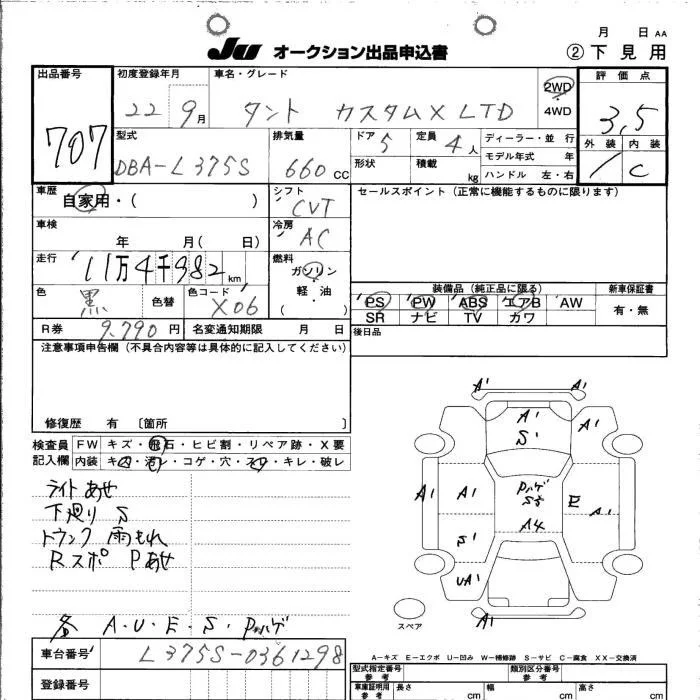 月 日 AA
JU オークション出品申込書
②下見用
出品番号 初度登録年月 車名・グレード 評価点
707 22 9月 タント カスタムX LTD 2WD 4WD 3,5
型式 排気量 ドア 定員 ディーラー・並行 外装 内装
DBA-L375S 660cc 5 4人 モデル年式 年 C
形状 積載 kg ハンドル 左・右
車歴 自家用・( ) シフト CVT セールスポイント(正常に機能するものに限ります)
車検 年 月( 日) 冷房 AC
走行 11万4千982km 燃料 ガソリン・軽・油 ( )
色 黒 色替 色コード X06
装備品(純正品に限る) 新車保証書
PS PW ABS エアB AW 有・無
SR ナビ TV カワ
R券 9,790円 名変通知期限 月 日 後日品
注意事項申告欄(不具合内容等は具体的に記入してください)
修復歴 有 〔箇所 〕
検査員 FW キズ・飛石・ヒビ割・リペア跡・X要
記入欄 内装 キズ・汚レ・コゲ・穴・スレ・キレ・破レ
ライトあせ
下廻り S
トランク 雨もれ
Rスポ Pあせ
各 A・U・E・S・Pハゲ
A1 A1
A1 A1
S1
A1 A1 Pハゲ E
A1
A4
S1
UA1
A1
スペア
A-キズ E-エクボ U-凹み W-補修跡 S-サビ C-腐食 XX-交換済
車台番号 L375S-0361298
登録番号
型式指定番号 参考 類別区分番号 参考
車庫証明用 参考 長さ cm 幅 cm 高さ cm